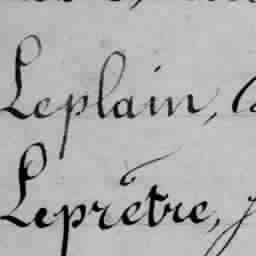 Leplain,
Leprêtre,